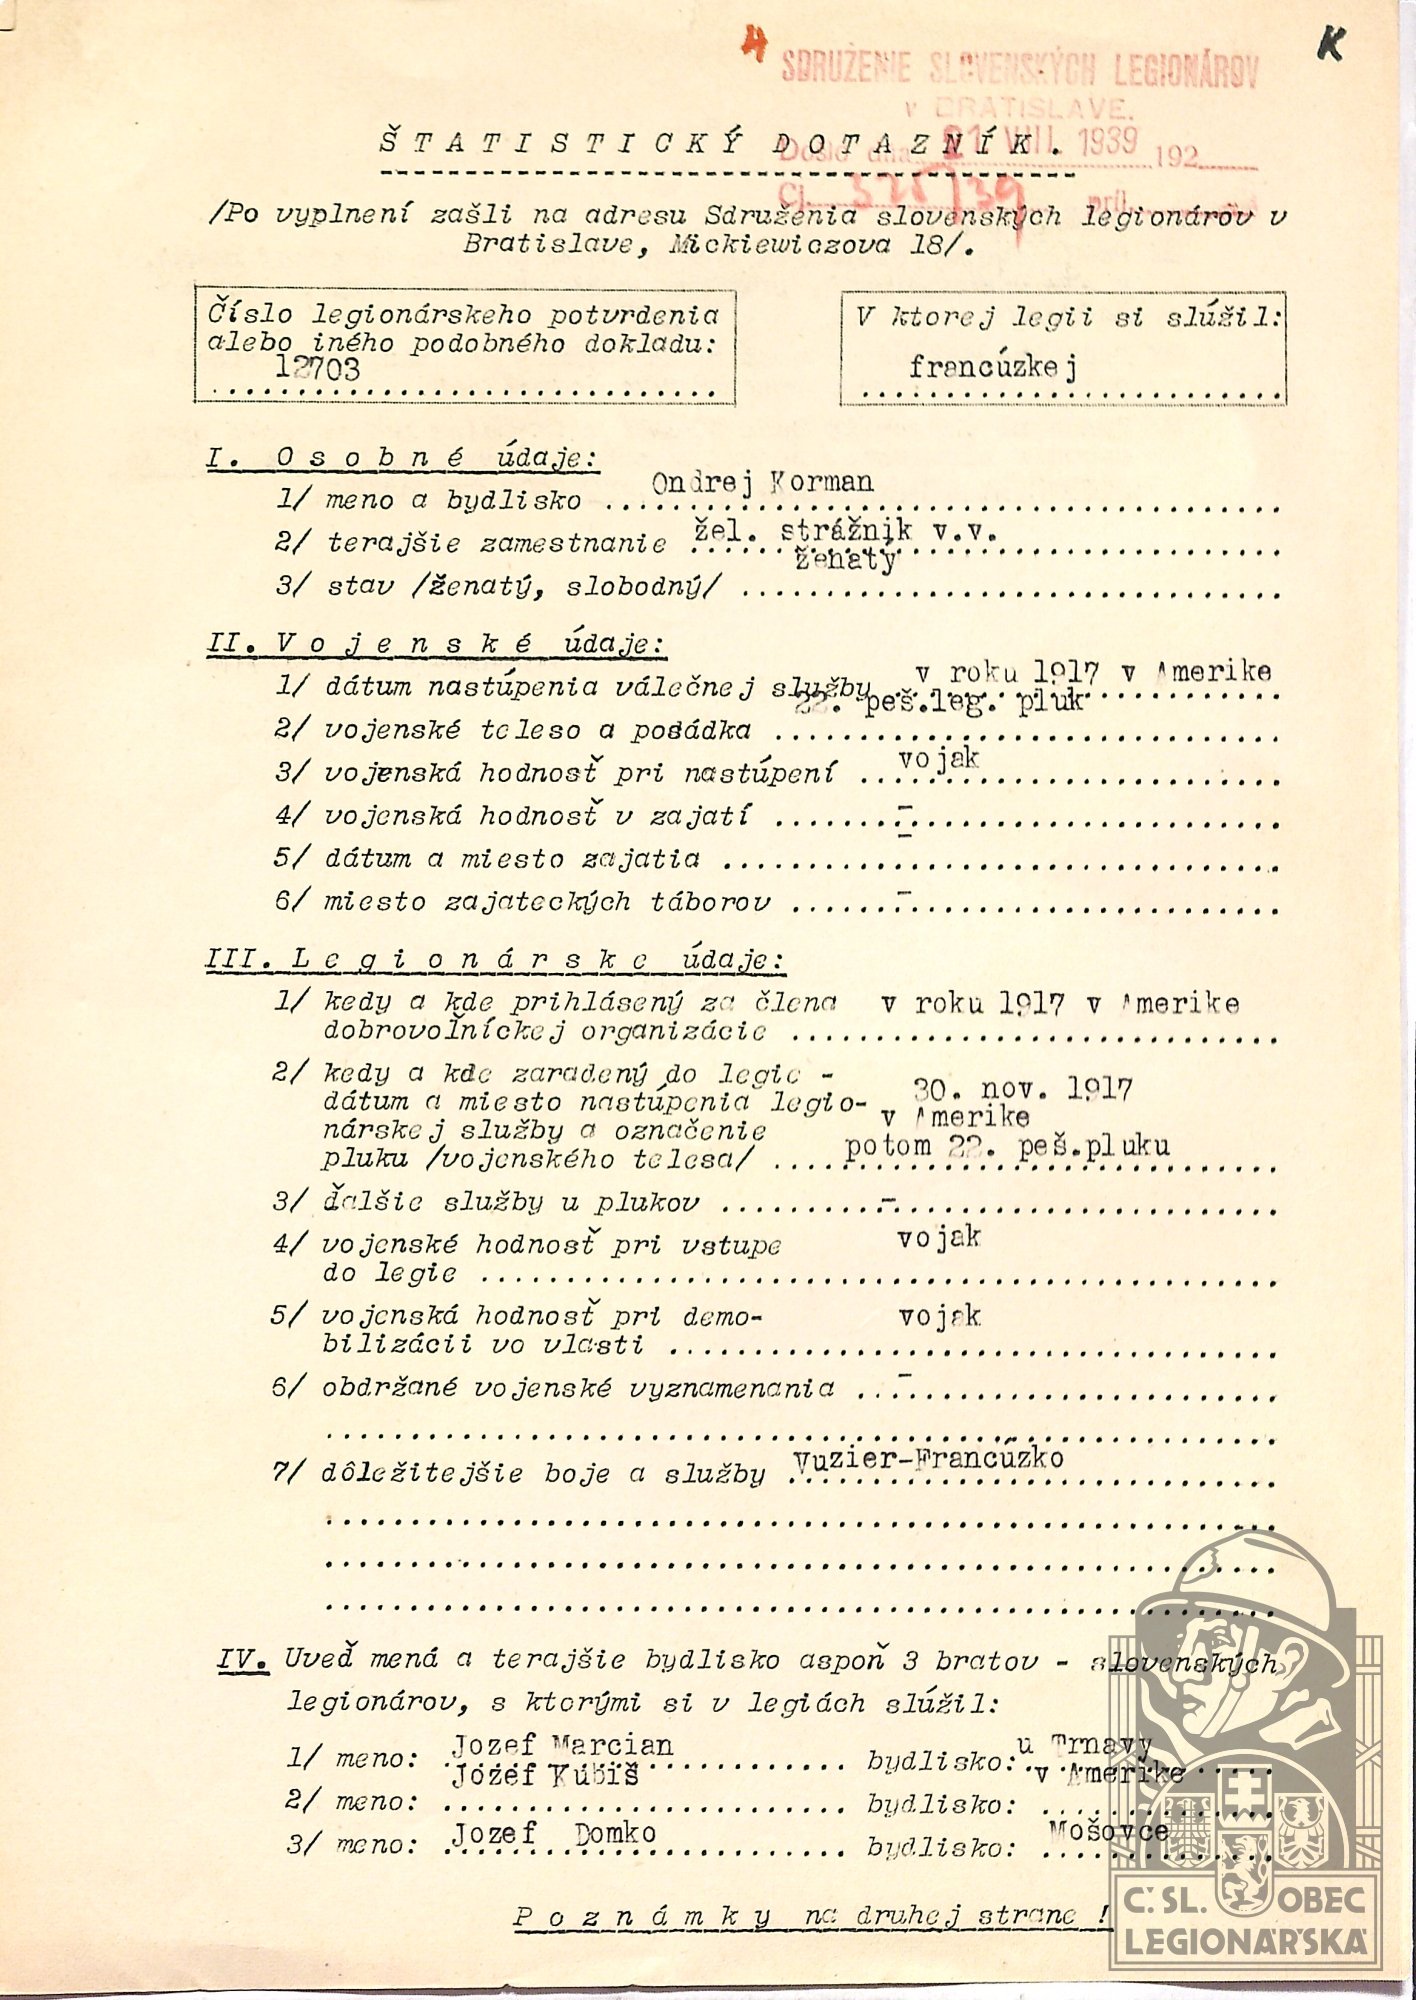 4
K
SDRUŽENIE SLOVENSKÝCH LEGIONÁROV
v BRATISLAVE.
Došlo dňa 21 VIII. 1939 192
Čj. 325/39 príl.
ŠTATISTICKÝ DOTAZNÍK.
/Po vyplnení zašli na adresu Sdruženia slovenských legionárov v
Bratislave, Mickiewiczova 18/.
Číslo legionárskeho potvrdenia
alebo iného podobného dokladu:
12703
V ktorej legii si slúžil:
francúzkej
I. Osobné údaje:
1/ meno a bydlisko Ondrej Korman
2/ terajšie zamestnanie žel. strážnik v.v.
3/ stav /ženatý, slobodný/ ženatý
II. Vojenské údaje:
1/ dátum nastúpenia válečnej služby v roku 1917 v Amerike
2/ vojenské teleso a posádka 22. peš.leg. pluk
3/ vojenská hodnosť pri nastúpení vojak
4/ vojenská hodnosť v zajatí -
5/ dátum a miesto zajatia -
6/ miesto zajateckých táborov -
III. Legionárske údaje:
1/ kedy a kde prihlásený za člena v roku 1917 v Amerike
dobrovoľníckej organizácie
2/ kedy a kde zaradený do legie -
dátum a miesto nastúpenia legio- 30. nov. 1917
nárskej služby a označenie v Amerike
pluku /vojenského telesa/ potom 22. peš.pluku
3/ ďalšie služby u plukov -
4/ vojenské hodnosť pri vstupe vojak
do legie
5/ vojenská hodnosť pri demo- vojak
bilizácii vo vlasti
6/ obdržané vojenské vyznamenania -
7/ dôležitejšie boje a služby Vuzier-Francúzko
IV. Uveď mená a terajšie bydlisko aspoň 3 bratov - slovenských
legionárov, s ktorými si v legiách slúžil:
1/ meno: Jozef Marcian bydlisko: u Trnavy
2/ meno: Jozef Kubiš bydlisko: v Amerike
3/ meno: Jozef Domko bydlisko: Mošovce
Poznámky na druhej strane !
Č.SL. OBEC
LEGIONÁŘSKÁ